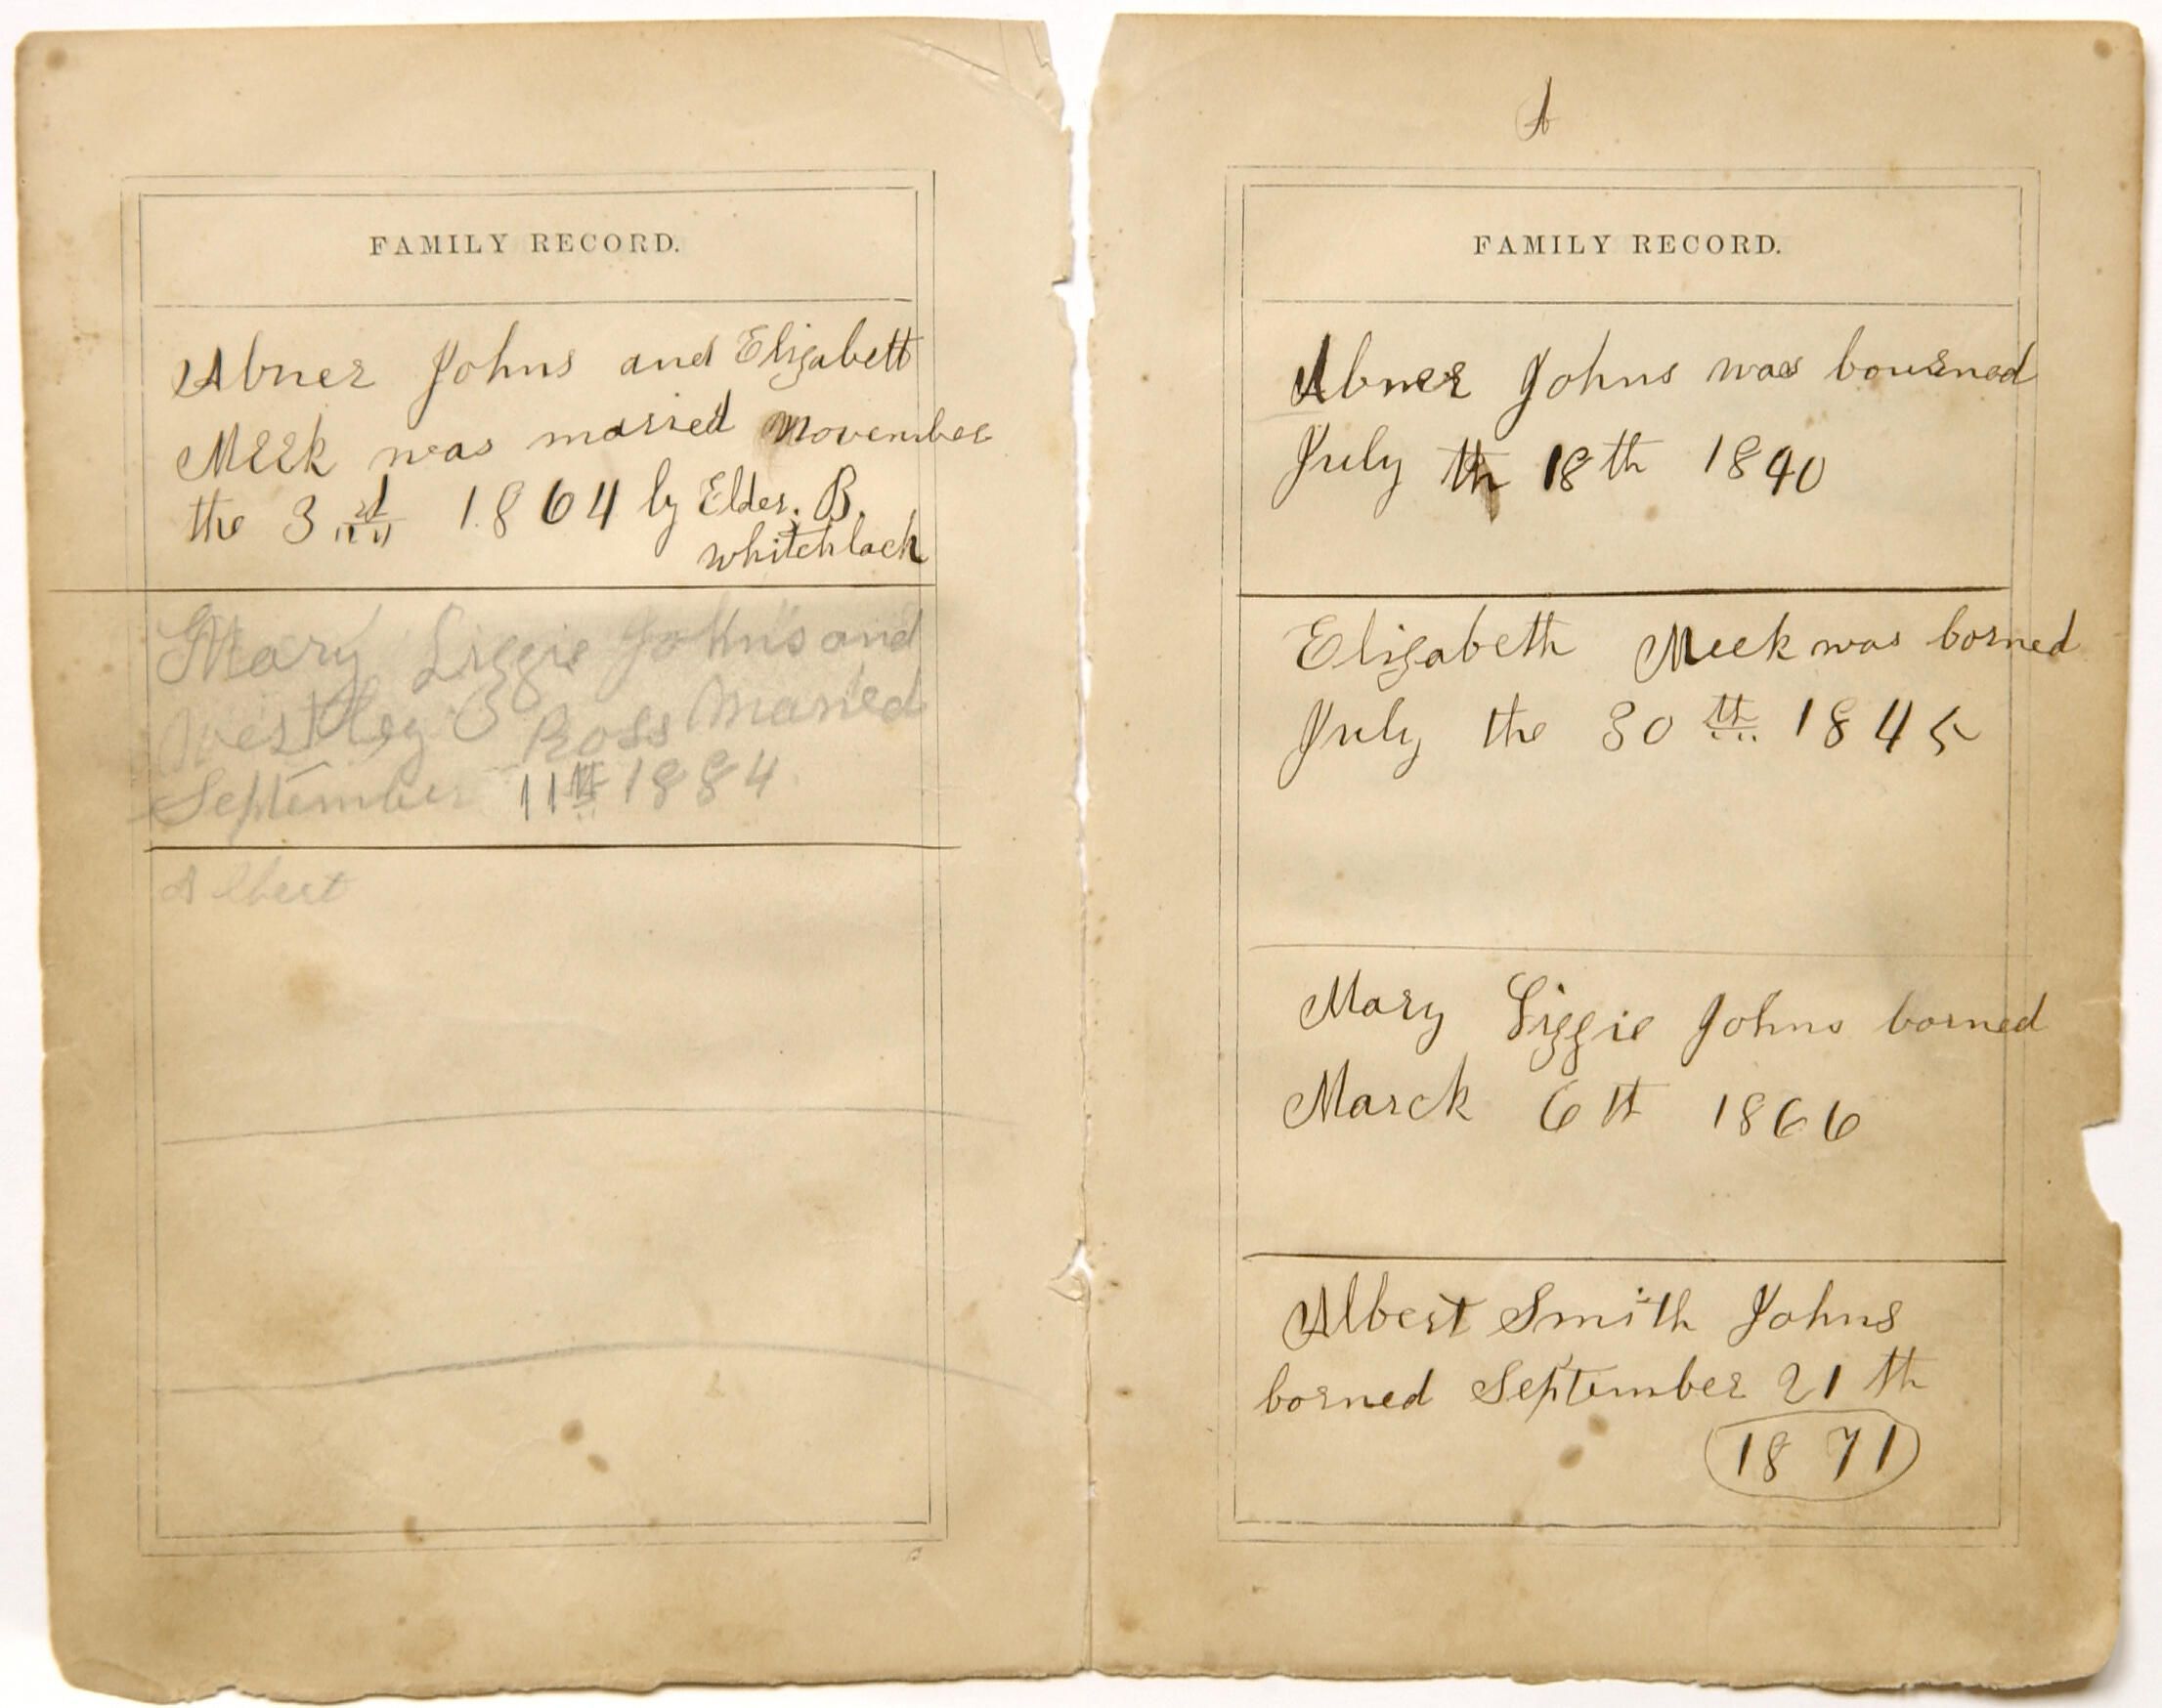 FAMILY RECORD.
Abner Johns and Elizabett
Meek was married November
the 3rd 1864 by Elder. B.
whitchlach
Mary Lizzie Johns and
Westley C Ross Maried
September 11th 1884
Albert
A
FAMILY RECORD.
Abner Johns was bourned
July th 18th 1840
Elizabeth Meek was borned
July the 30th 1845
Mary Lizzie Johns borned
March 6th 1866
Albert Smith Johns
borned September 21th
1871